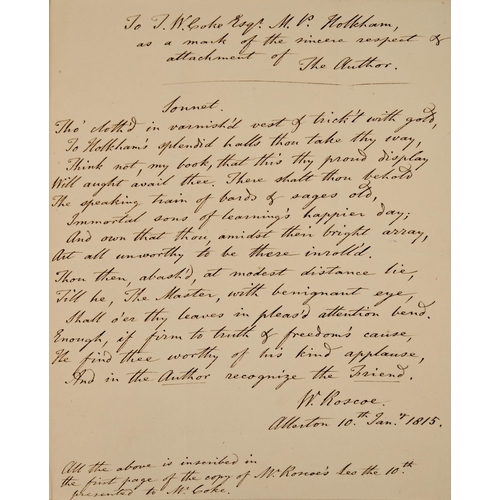 To T. W. Coke Esqr. M. P. Holkham,
as a mark of the sincere respect &
attachment of
The Author.
Sonnet.
Tho' cloth'd in varnish'd vest & trick't with gold,
To Holkham's splendid halls thou take thy way,
Think not my book, that this thy proud display
Will aught avail thee. There shalt thou behold
The speaking train of bards & sages old,
Immortal sons of learning's happier day;
And own that thou, amidst their bright array,
Art all unworthy to be there inroll'd.
Thou then, abash'd, at modest distance lie,
Till he, The Master, with benignant eye,
Shall o'er thy leaves in pleas'd attention bend.
Enough, if firm to truth & freedom's cause,
He find thee worthy of his kind applause,
And in the Author recognize the Friend.
W. Roscoe.
Allerton 10.th Jan.y 1815.
All the above is inscribed in
the first page of the copy of Mr. Roscoe's Leo the 10th.
presented to Mr. Coke.